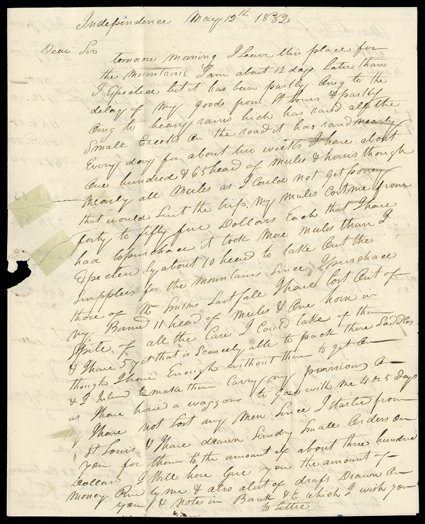 Independence May 12th 1832
Dear Sir
tomorow morning I Leave this place for
the mountains I am about 12 days Later than
I Expected but it has bin partly Oing to the
delay of My Goods from St Louis & partly
Oing to heavey rains hich has raisd all the
Small Creeks On the road it has raind nearly
Every day for about two weeks I have about
One hundred & 65 head of Mules & horses though
nearly all Mules as I Could not Get poneys
that would Suit the trip, My Mules Cost me from
forty to fifty five Dollars Each that I have
had to purchace it took More mules than I
Expected by about 10 heed to take Out the
Supplies for the Mountains Since I purchace
those of Mr Smiths Last fall I have lost Out of
My Band 11 head of Mules & One hors in
Spite of all thee Care I Could take of them
& I have 5 yet that is Scarcely able to pack there Saddles
though I have Enough without them to get a
& I Intend to make them Carry my provisions a
as I have hired a waggone to go with me 4 or 5 days
I have not Lost any Men Since I Started from
St Louis & I have drawn Sundry Small Orders on
you for them to the amount of about three hundred
Dollars I Will here Give you the amount of
Money by me & also a list of drafs Drawn On
you & Note in Bank & C which I wish you
to Settle